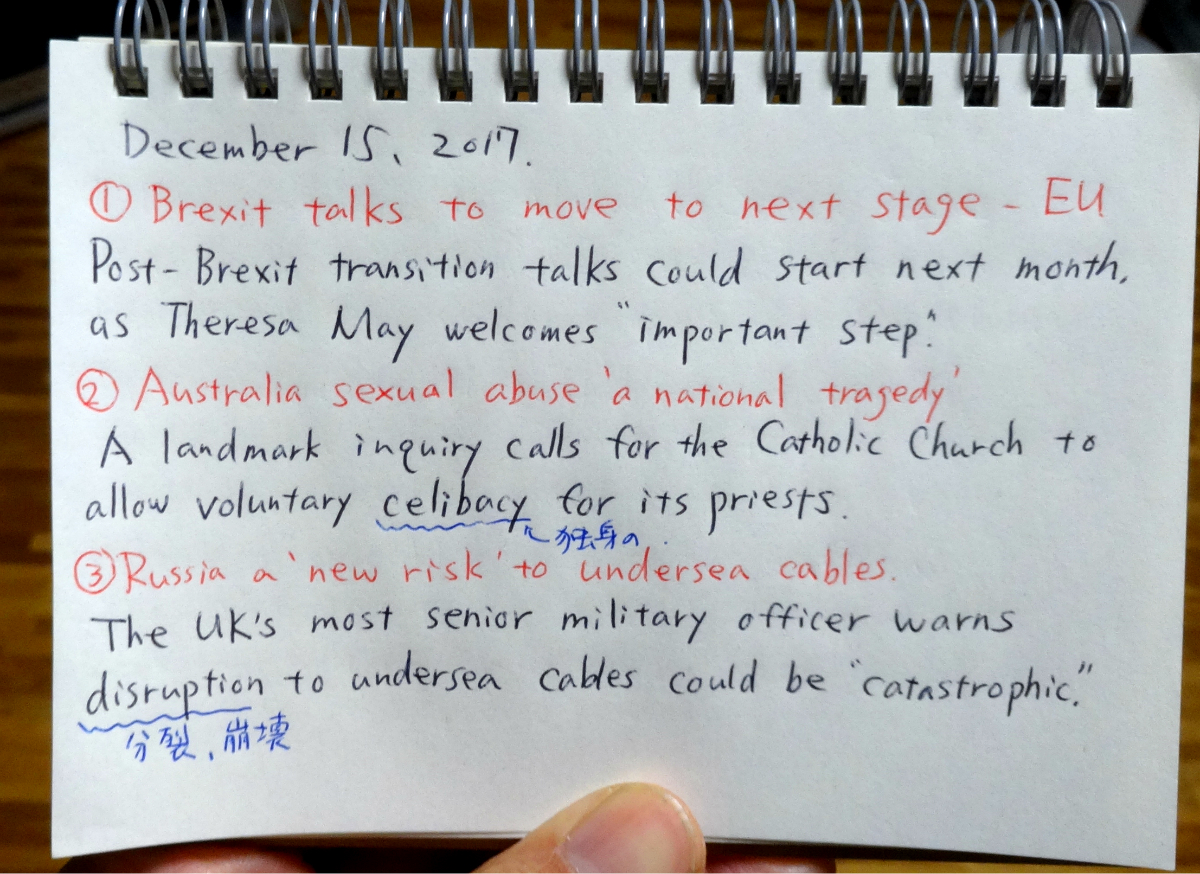 December 15, 2017.
① Brexit talks to move to next stage - EU
Post-Brexit transition talks could start next month,
as Theresa May welcomes "important step".
② Australia sexual abuse 'a national tragedy'
A landmark inquiry calls for the Catholic Church to
allow voluntary celibacy for its priests.
独身の
③ Russia a 'new risk' to undersea cables.
The UK's most senior military officer warns
disruption to undersea cables could be "catastrophic."
分裂、崩壊